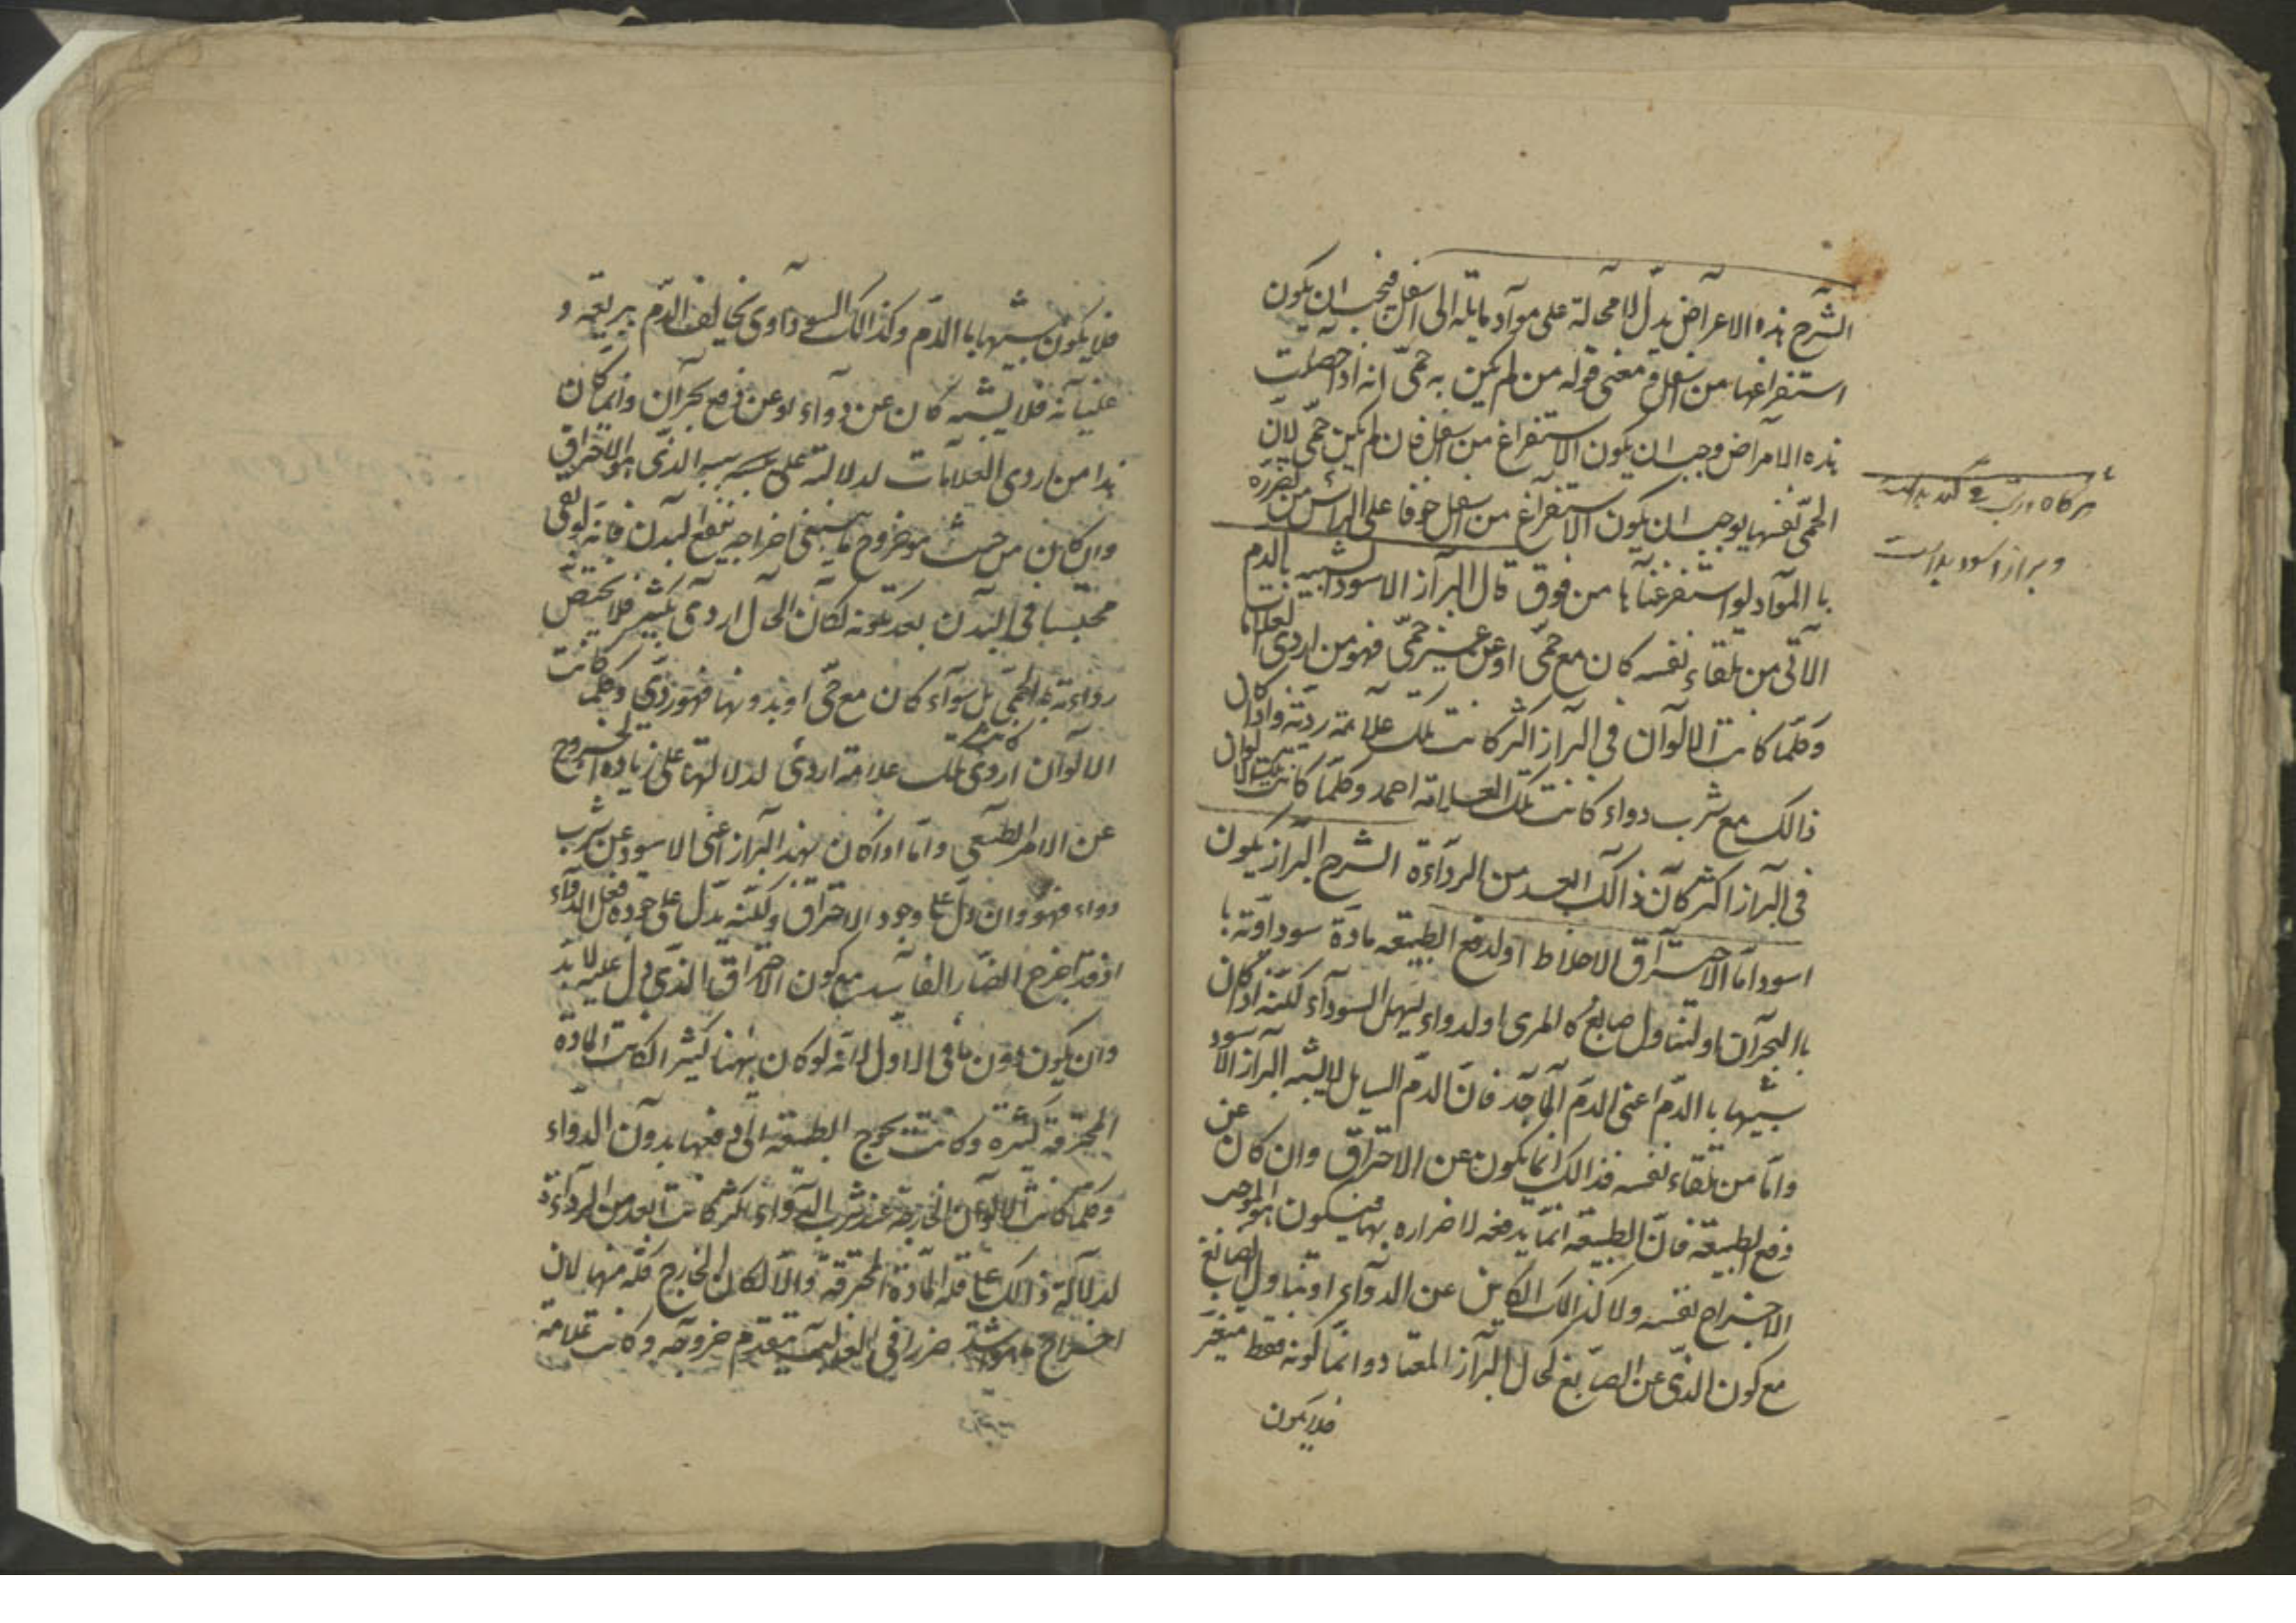 الشرح هذه الاعراض تدل لا محالة على مواد مايلة الى اسفل فيجب ان يكون
استفراغها من اسفل و معنى قوله من لم يكن به حمى انه اذا حصلت
هذه الامراض وجب ان يكون الاستفراغ من اسفل فان لم يكن حمى لان
الحمى نفسها يوجب ان يكون الاستفراغ من اسفل خوفا على الراس من تضرره
با المواد لو استفرغناها من فوق قال البراز الاسود الشبيه بالدم
الاتى من تلقاء نفسه كان مع حمى او عن غير حمى فهو من اردى العلامات
وكلما كانت الالوان فى البراز اكثر كانت تلك علامة ردية واذا كان
ذالك مع شرب دواء كانت تلك العلامة احمد وكلما كانت تلك الالوان
فى البراز اكثر كان ذالك ابعد من الرداءة الشرح البراز يكون
اسود اما لاحتراق الاخلاط او لدفع الطبيعه مادة سوداوية
با البحران او لتناول صابغ كالمرى او لدواء يسهل السوداء لكنه اذا كان
شبيها با الدم اعنى الدم الجامد فان الدم السايل لا يشبه البراز الاسود
واما من تلقاء نفسه فذالك انما يكون عن الاحتراق وان كان عن
دفع الطبيعه فان الطبيعه انما يدفعه لاضراره بها فيكون الموجب
الاخراج نفسه ولا كذالك الكاين عن الدواء او تناول الصابغ
مع كون الذى عن الصابغ كحال البراز المعتاد وانما لونه فقط متغير
فلا يكون
هرگاه در تب
و براز اسود بد است
فلا يكون شبيها با الدم وكذالك السوداوى يخالف الدم ببريقه و
غليانه فلا يشبه كان عن دواء او عن دفع بحران وانما كان
هذا من اردى العلامات لدلالته على سببه الذى هو الاحتراق
وان كان من حيث هو خروج ما ينبغى اخراجه ينفع البدن فانه لو بقى
محتبسا فى البدن بعد تكونه لكان الحال اردى بكثير فلا يختص
رداءته بالحمى بل سواء كان مع حمى او بدونها فهو ردى وكلما كانت
الالوان اردى كانت تلك علامة اردى لدلالتها على زيادة الخروج
عن الامر الطبيعى واما اذا كان هذا البراز اعنى الاسود عن شرب
دواء فهو وان دل على وجود الاحتراق ولكنه يدل على جودة فعل الدواء
اذ قد اخرج الضار الفاسد مع كون الاحتراق الذى دل عليه لا بد
وان يكون دون ما فى الاول لانه لو كان ههنا كثيرا لكانت المادة
المحترقة كثيرة وكانت تحوج الطبيعه الى دفعها بدون الدواء
وكلما كانت الالوان الخارجة عند شرب الدواء اكثر كانت ابعد من الرداءة
لدلالة ذالك على قلة المادة المحترقة والا لكان الخارج كله منها لان
اخراج ما هو اشد ضررا فى الغالب يتقدم خروجه وكانت علامة